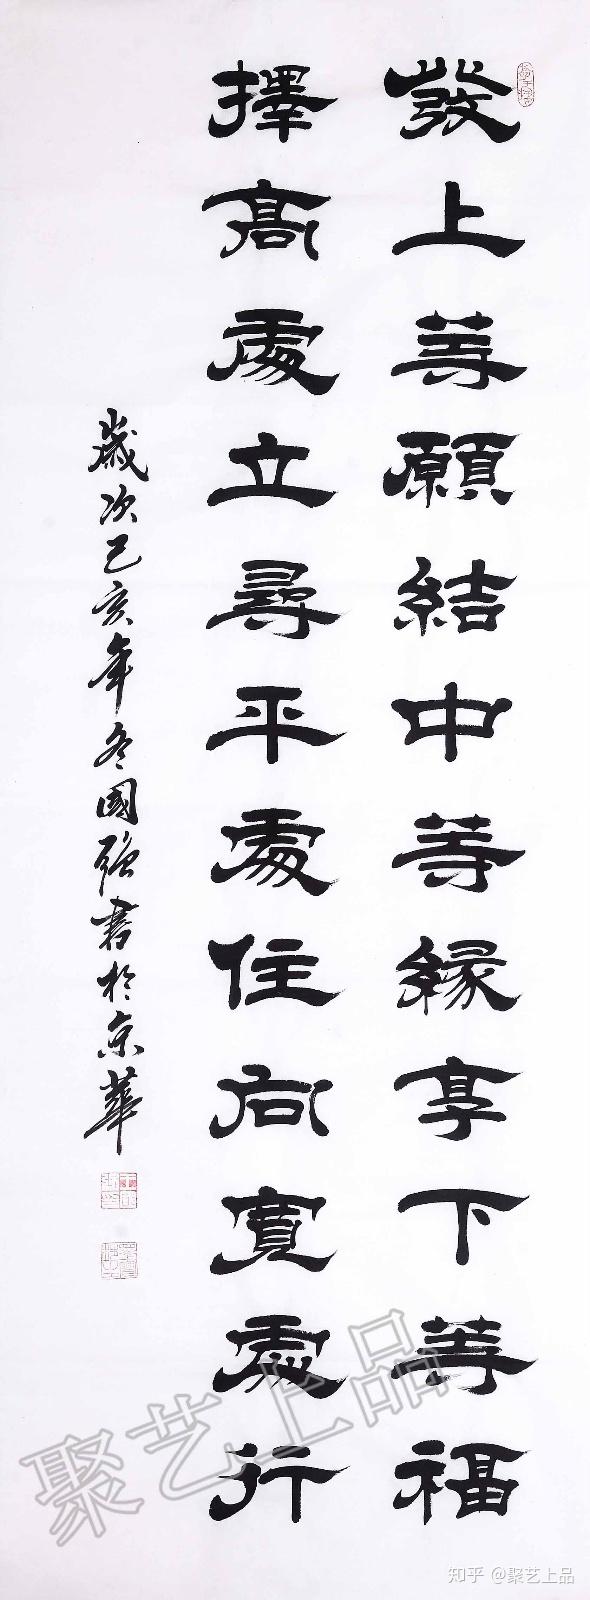 發上等願結中等緣享下等福
擇高處立尋平處住向寬處行
歲次己亥年冬國強書於京華
聚艺上品
知乎 @聚艺上品